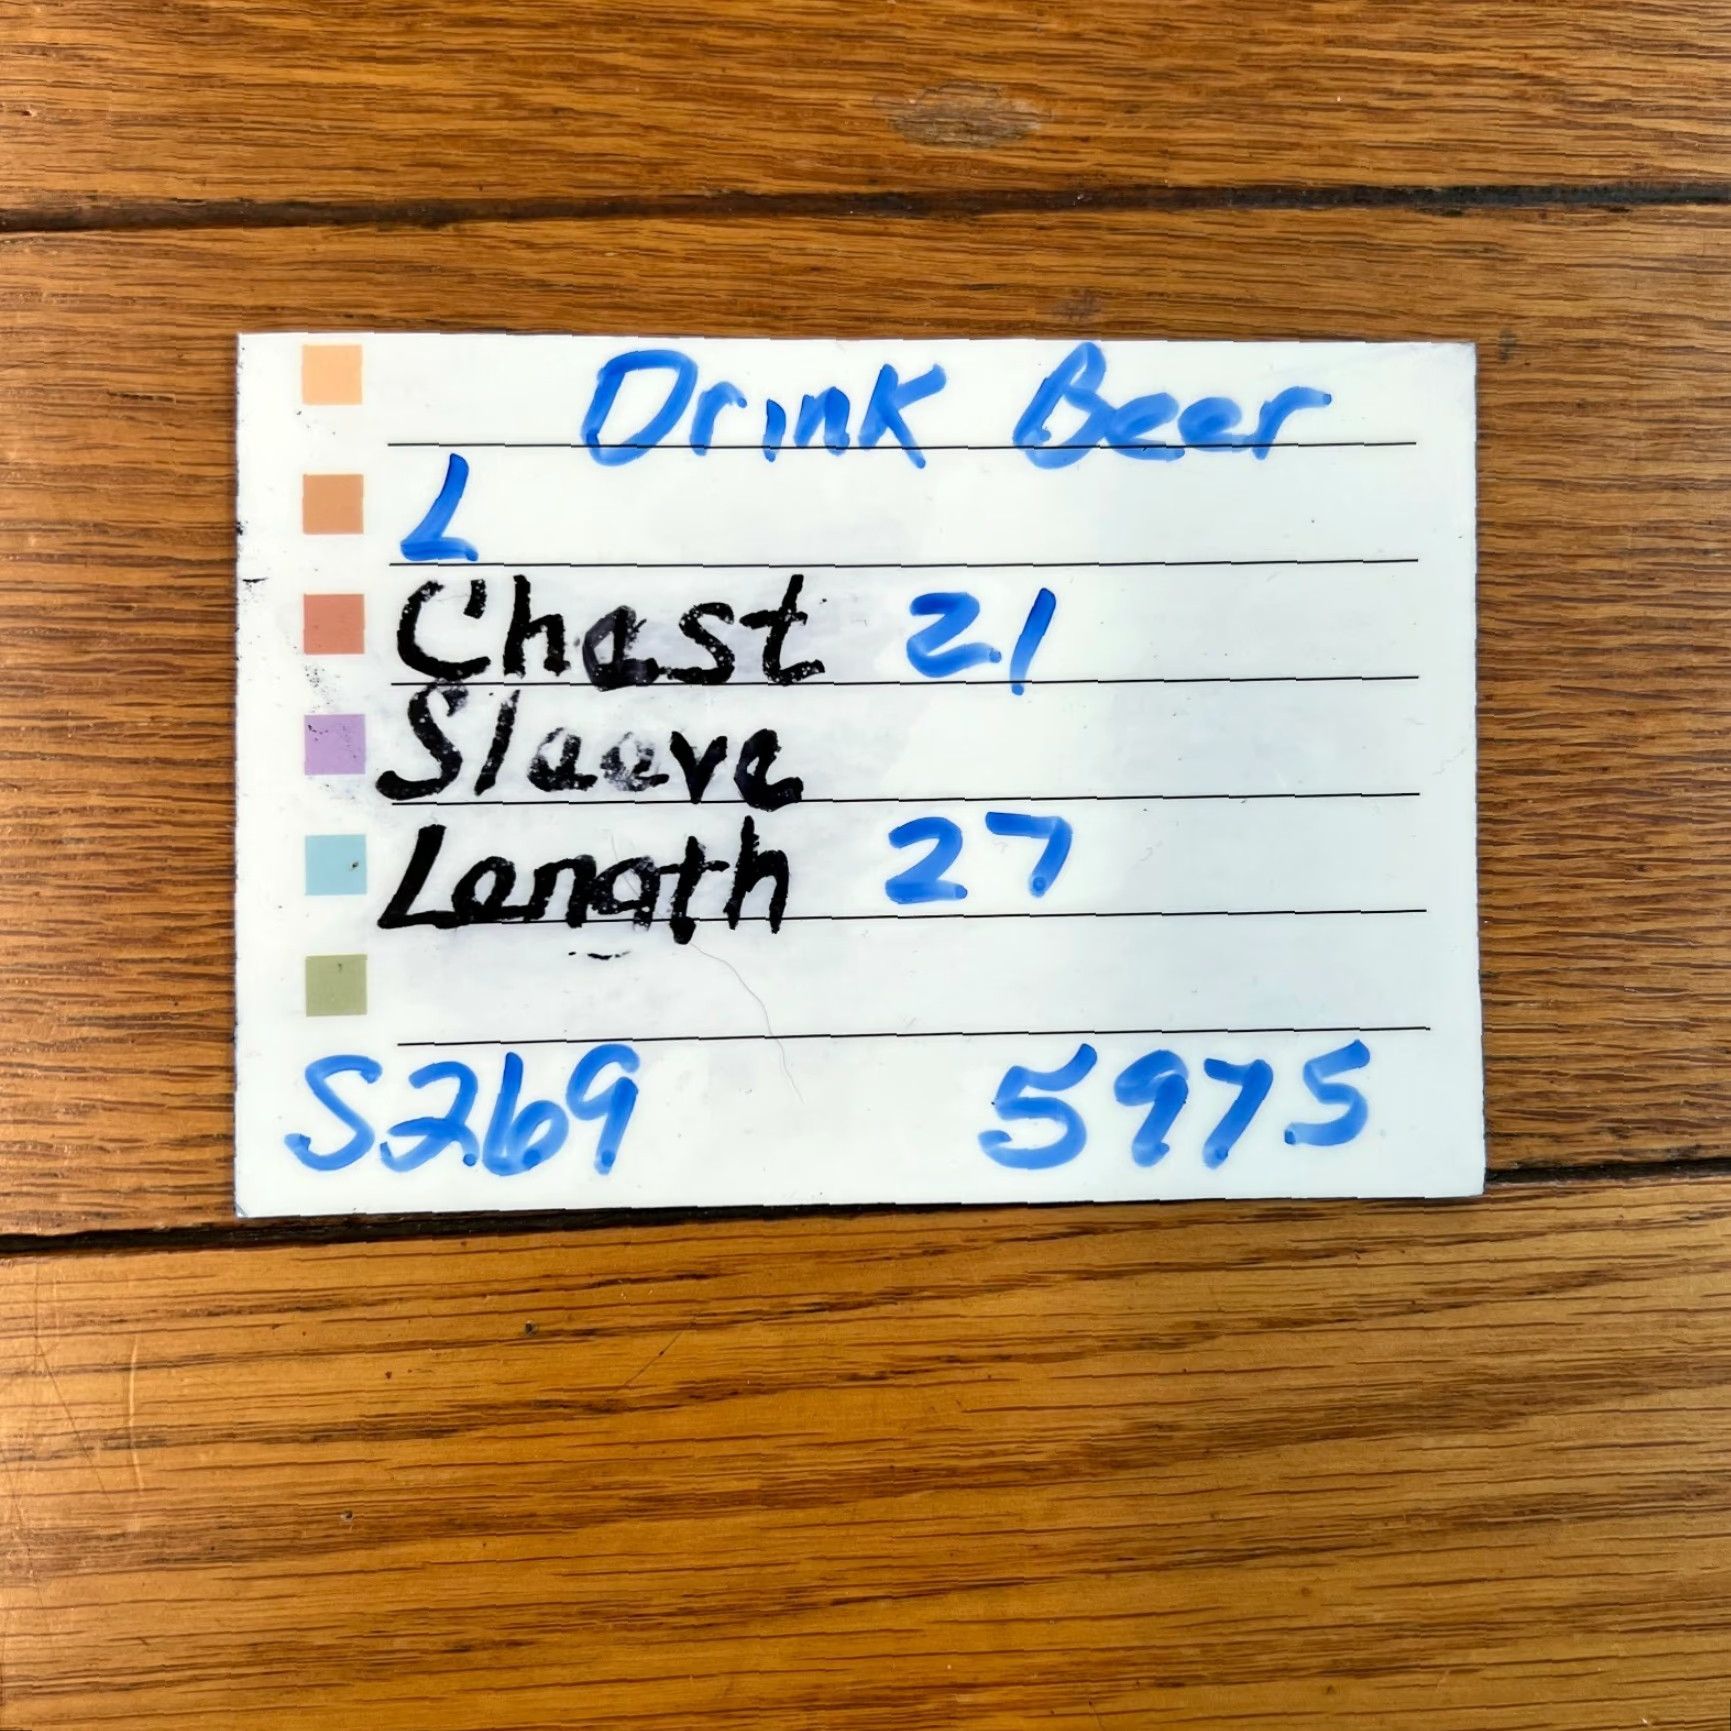 Drink Beer
L
Chest 21
Sleeve
Length 27
S269 5975